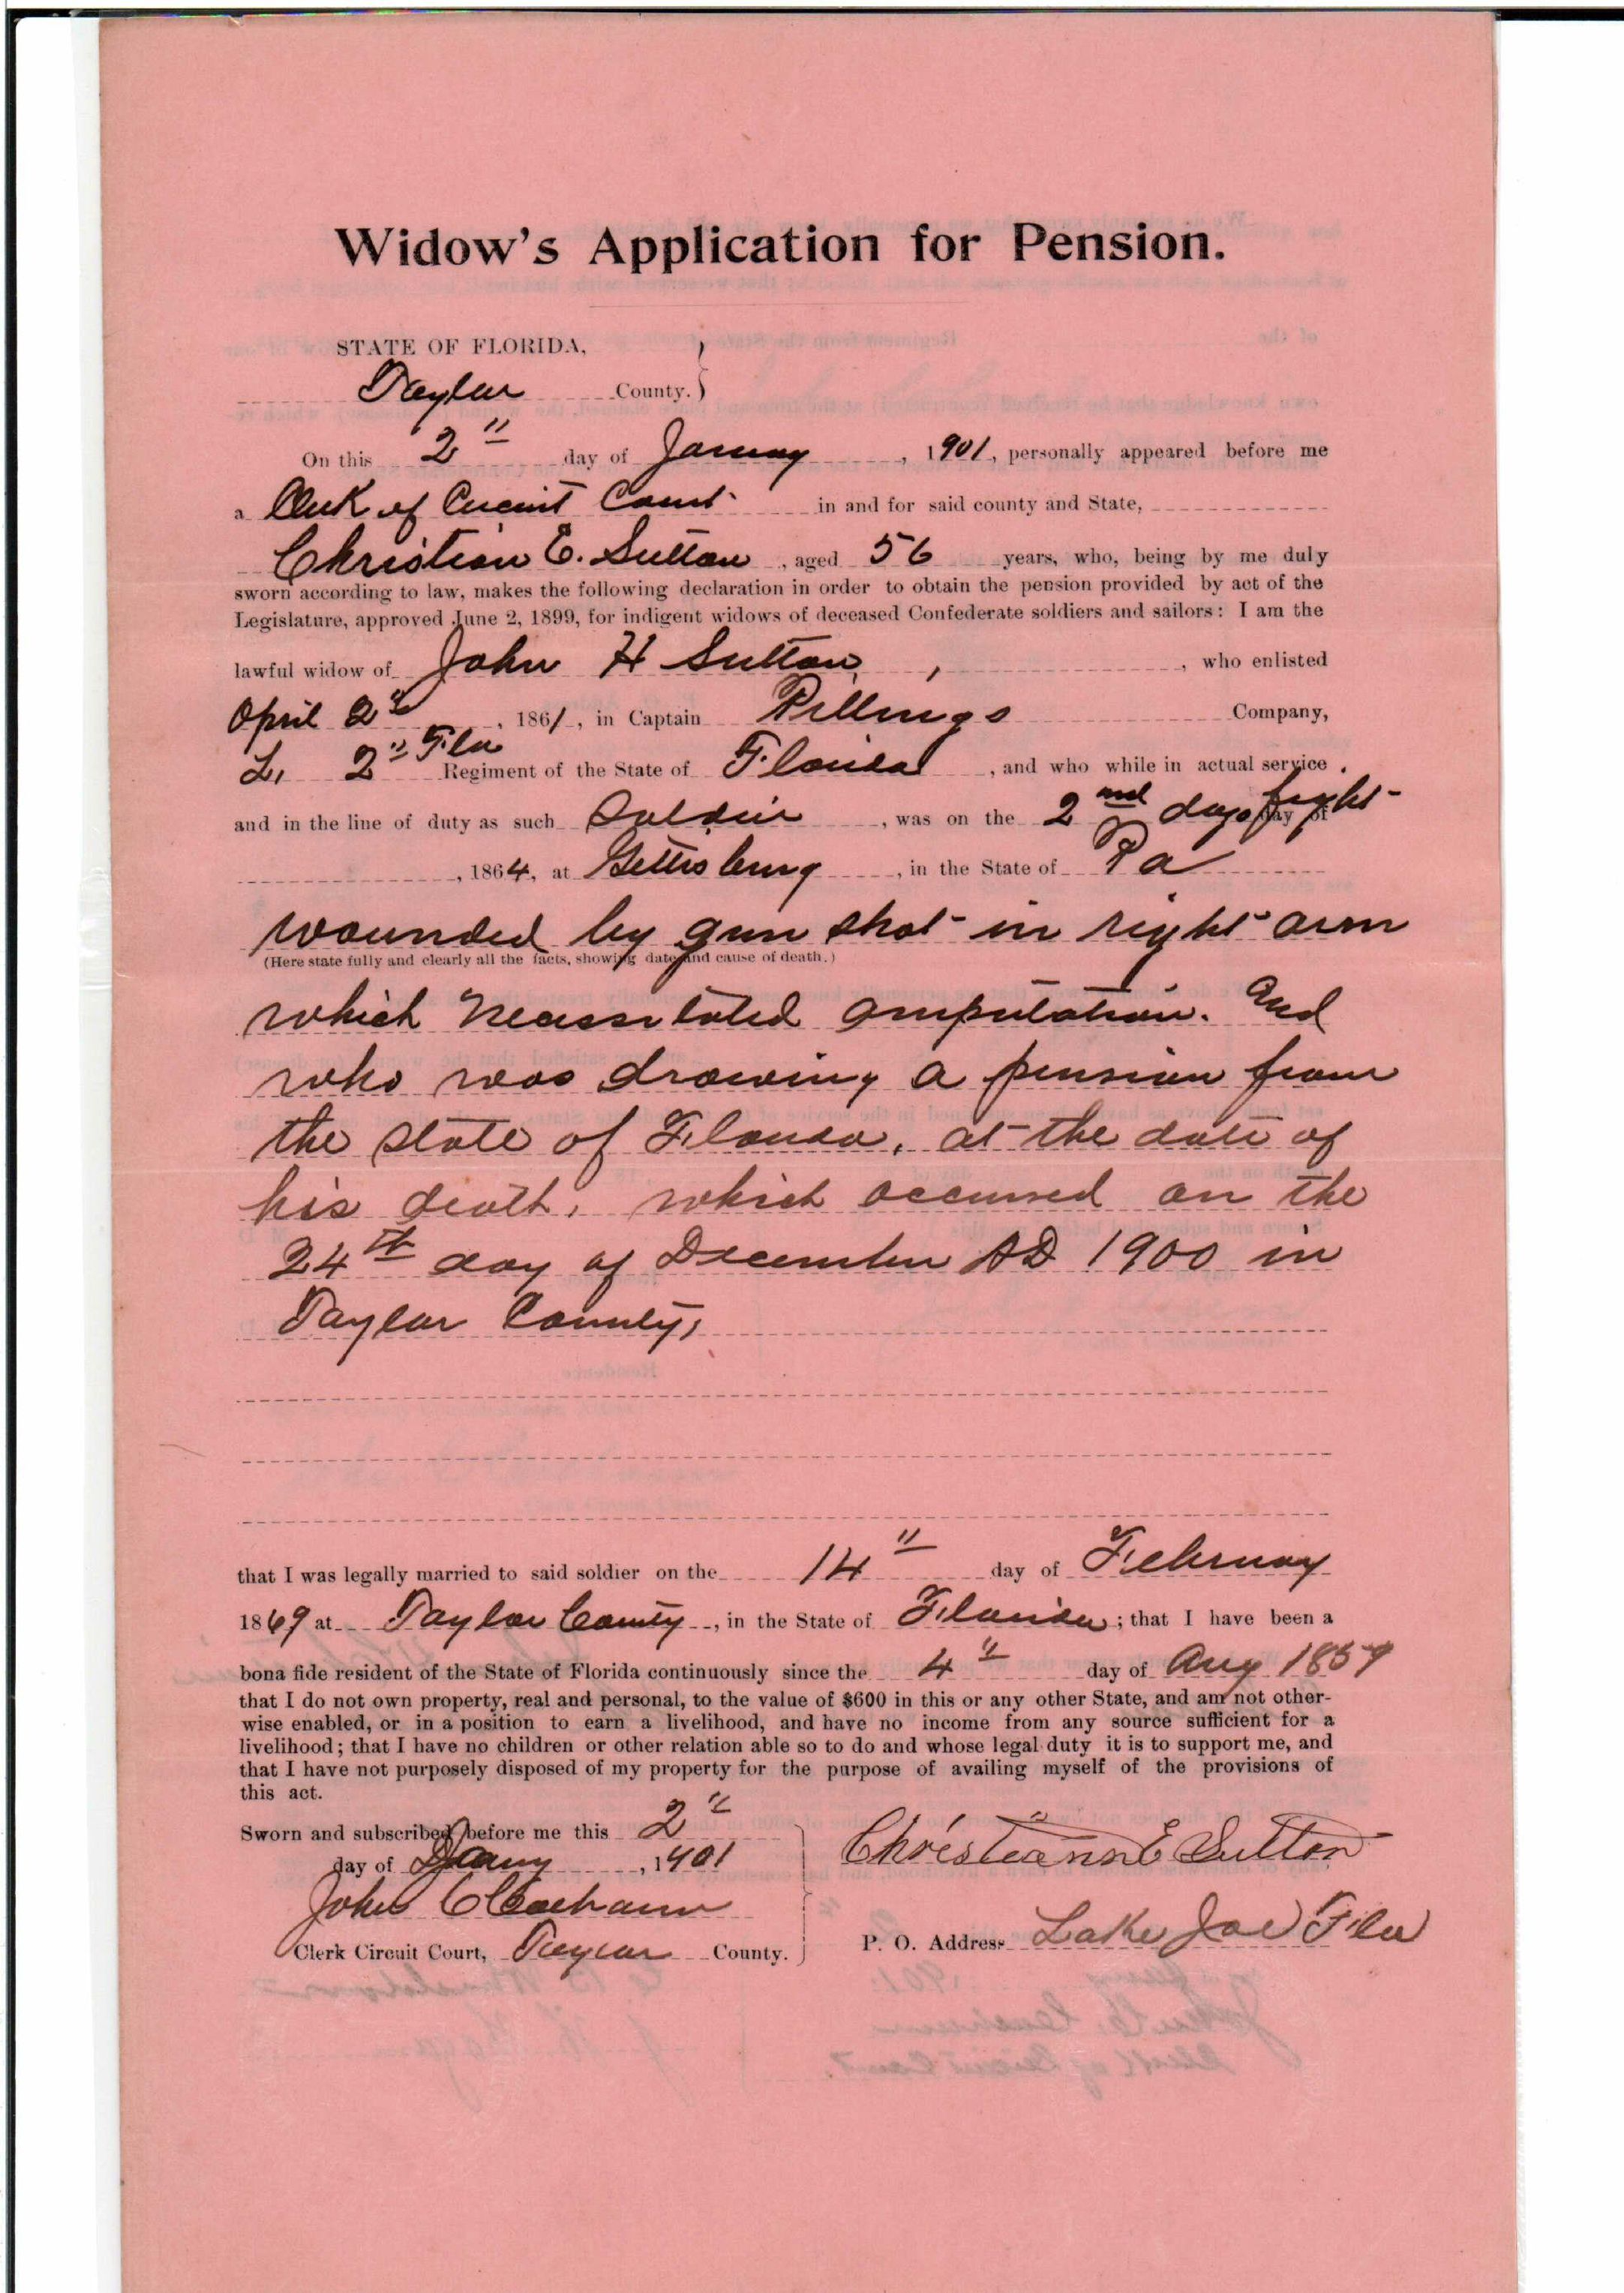 Widow's Application for Pension.
STATE OF FLORIDA,
Taylor County.
On this 2" day of January, 1901, personally appeared before me
a Clerk of Circuit Court in and for said county and State,
Christian E. Sutton, aged 56 years, who, being by me duly
sworn according to law, makes the following declaration in order to obtain the pension provided by act of the
Legislature, approved June 2, 1899, for indigent widows of deceased Confederate soldiers and sailors: I am the
lawful widow of John H Sutton, who enlisted
April 2", 1861, in Captain Company,
L, 2" Fla Regiment of the State of Florida, and who while in actual service
and in the line of duty as such Soldier, was on the 2nd days fight day of
, 1864, at Gettisburg, in the State of Pa
wounded by gun shot in right arm
(Here state fully and clearly all the facts, showing date and cause of death.)
which necessitated amputation. And
who was drawing a pension from
the state of Florida, at the date of
his death, which occurred on the
24th day of December AD 1900 in
Taylor County,
that I was legally married to said soldier on the 14" day of February
1869 at Taylor County, in the State of Florida; that I have been a
bona fide resident of the State of Florida continuously since the 4" day of Aug 1859
that I do not own property, real and personal, to the value of $600 in this or any other State, and am not other-
wise enabled, or in a position to earn a livelihood, and have no income from any source sufficient for a
livelihood; that I have no children or other relation able so to do and whose legal duty it is to support me, and
that I have not purposely disposed of my property for the purpose of availing myself of the provisions of
this act.
Sworn and subscribed before me this 2"
day of Jany, 1901
John C
Clerk Circuit Court, Taylor County.
Christiann E Sutton
P. O. Address Lake Joe Fla